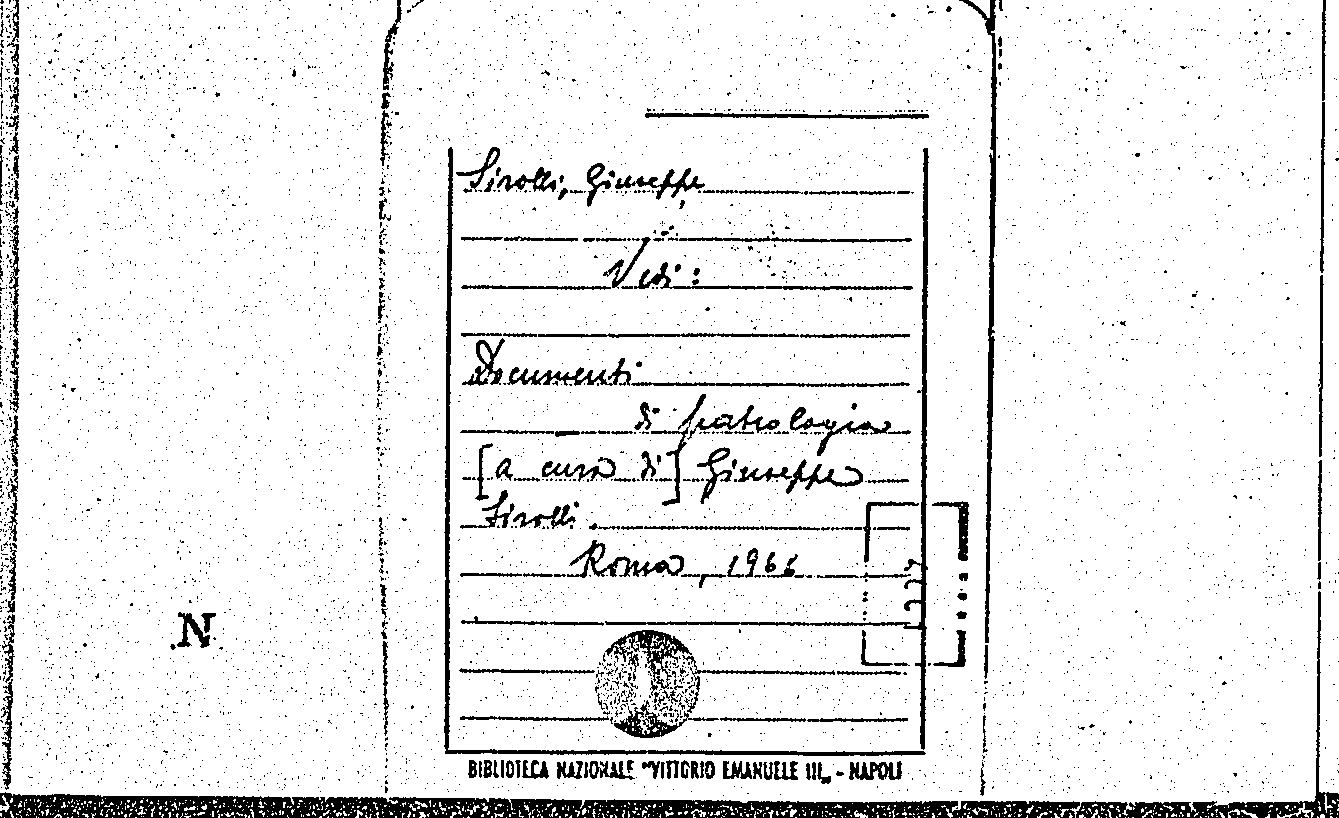 Sirolli, Giuseppe
Vedi:
Documenti
di patrologia
[a cura di] Giuseppe
Sirolli.
Roma, 1966
N
BIBLIOTECA NAZIONALE "VITTORIO EMANUELE III„ - NAPOLI